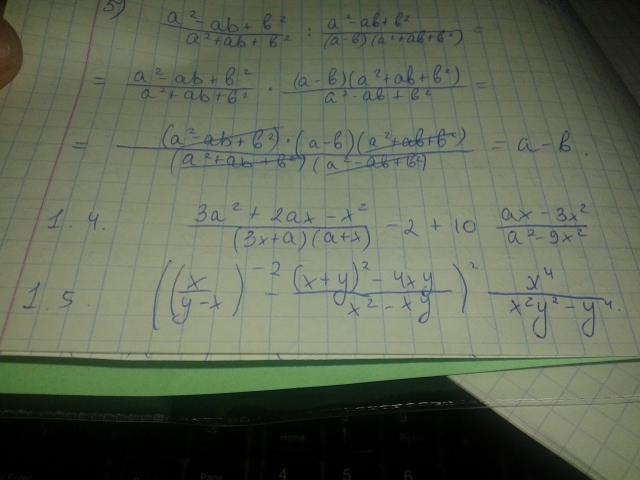 5) (a² - ab + b²)/(a² + ab + b²) : (a² - ab + b²)/((a-b)(a² + ab + b²)) =
= (a² - ab + b²)/(a² + ab + b²) · ((a-b)(a² + ab + b²))/(a² - ab + b²) =
= ((a² - ab + b²)·(a-b)(a² + ab + b²))/((a² + ab + b²)(a² - ab + b²)) = a - b.
1.4. (3a² + 2ax - x²)/((3x+a)(a+x)) - 2 + 10 (ax - 3x²)/(a² - 9x²)
1.5. ((x/(y-x))⁻² - ((x+y)² - 4xy)/(x² - xy))² x⁴/(x²y² - y⁴).